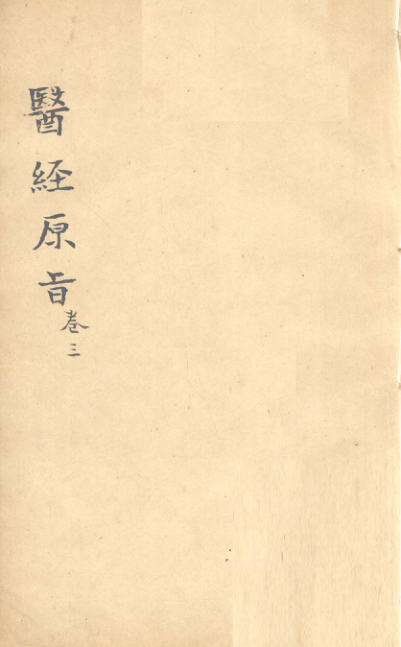 醫経原旨
卷三